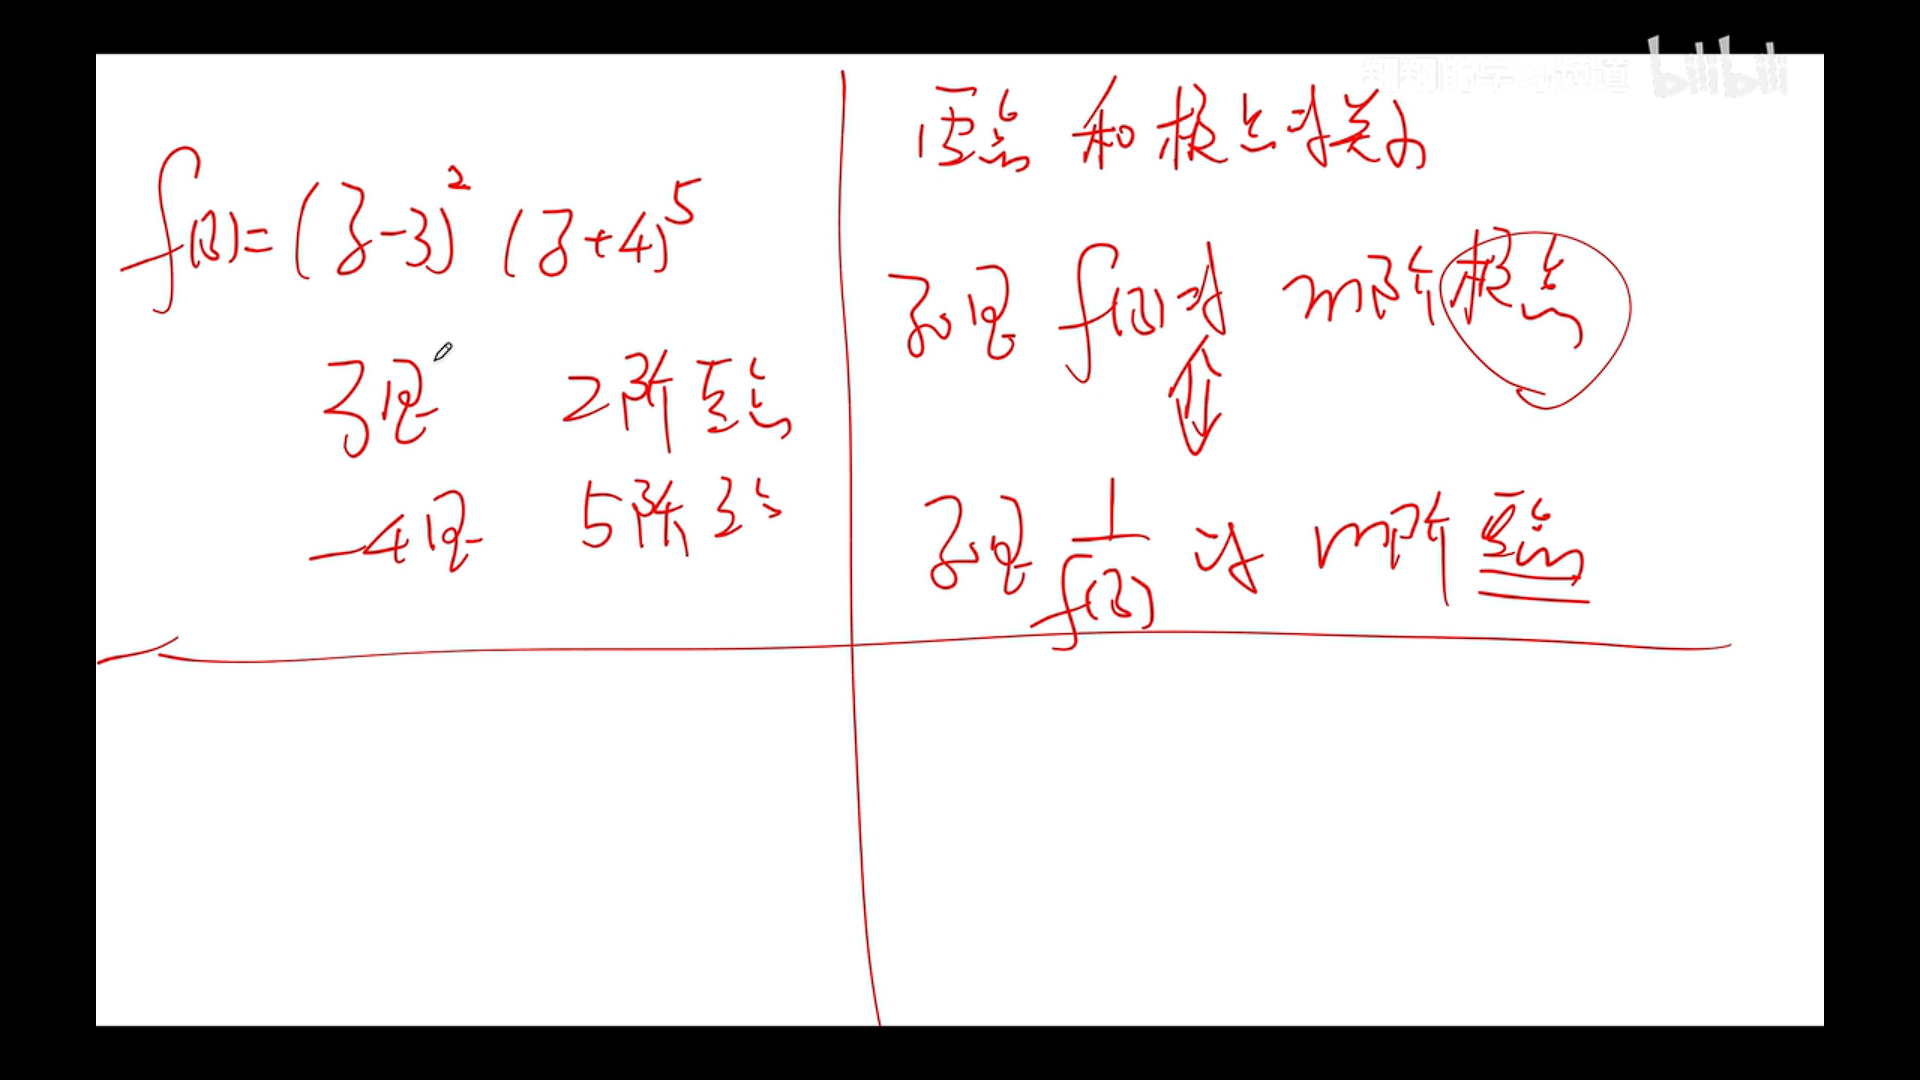 f(z)=(z-3)² (z+4)⁵
3是 2阶零点
-4是 5阶零点
零点和极点的关系
z₀是 f(z)的 m阶极点
⇕
z₀是 1/f(z) 的 m阶零点
bilibili